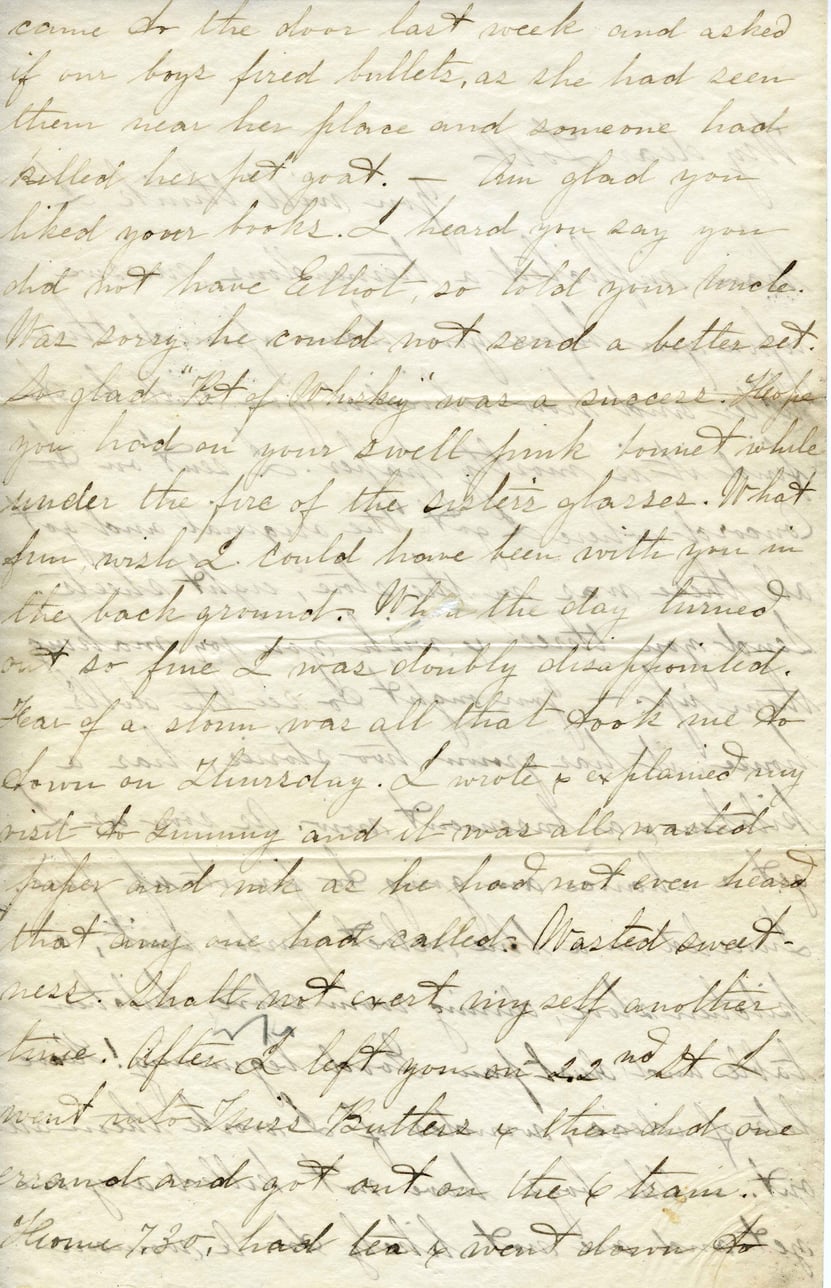 came to the door last week and asked
if our boys fired bullets, as she had seen
them near her place and someone had
killed her pet goat. — Am glad you
liked your books. I heard you say you
did not have Elliot, so told your Uncle.
Was sorry he could not send a better set.
So glad "Pot of Whiskey" was a success. Hope
you had on your swell pink bonnet while
under the fire of the sister's glasses. What
fun, wish I could have been with you in
the back ground. When the day turned
out so fine I was doubly disappointed.
Fear of a storm was all that took me to
town on Thursday. I wrote & explained my
visit to and it was all wasted
paper and ink as he had not even heard
that any one had called. Wasted sweet-
ness. Shall not exert myself another
time! After I left you on 22nd St I
went into Miss Butlers & then did one
errand and got out on the 6 train..
Home 7.30, had tea & went down to